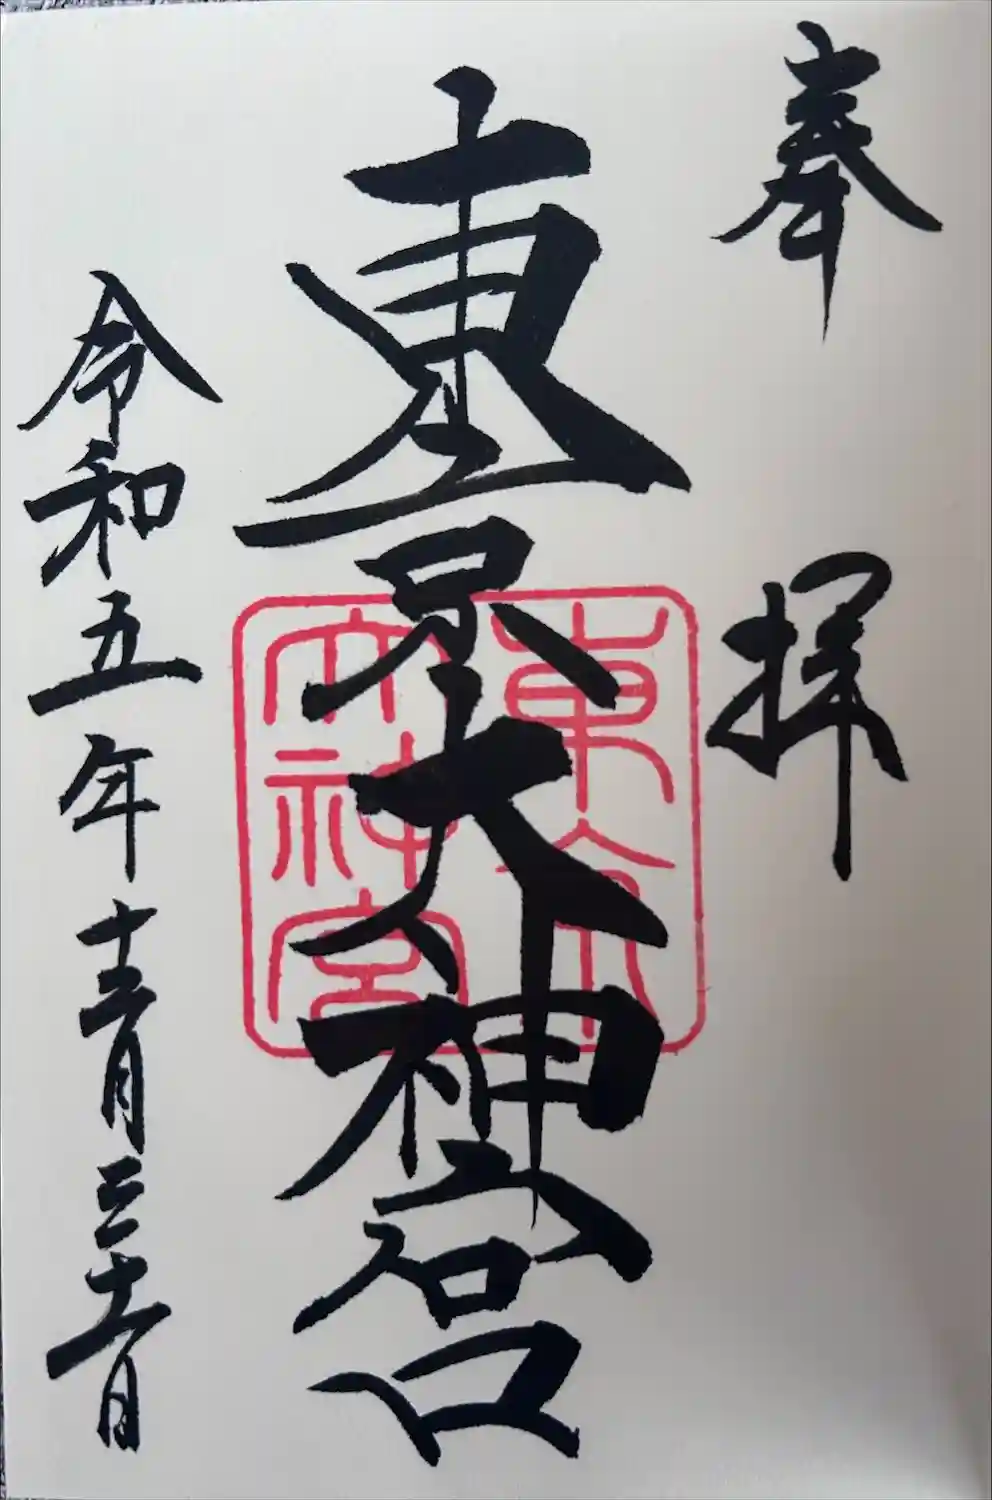 奉拝
東京大神宮
東京大神宮
令和五年十二月三十一日